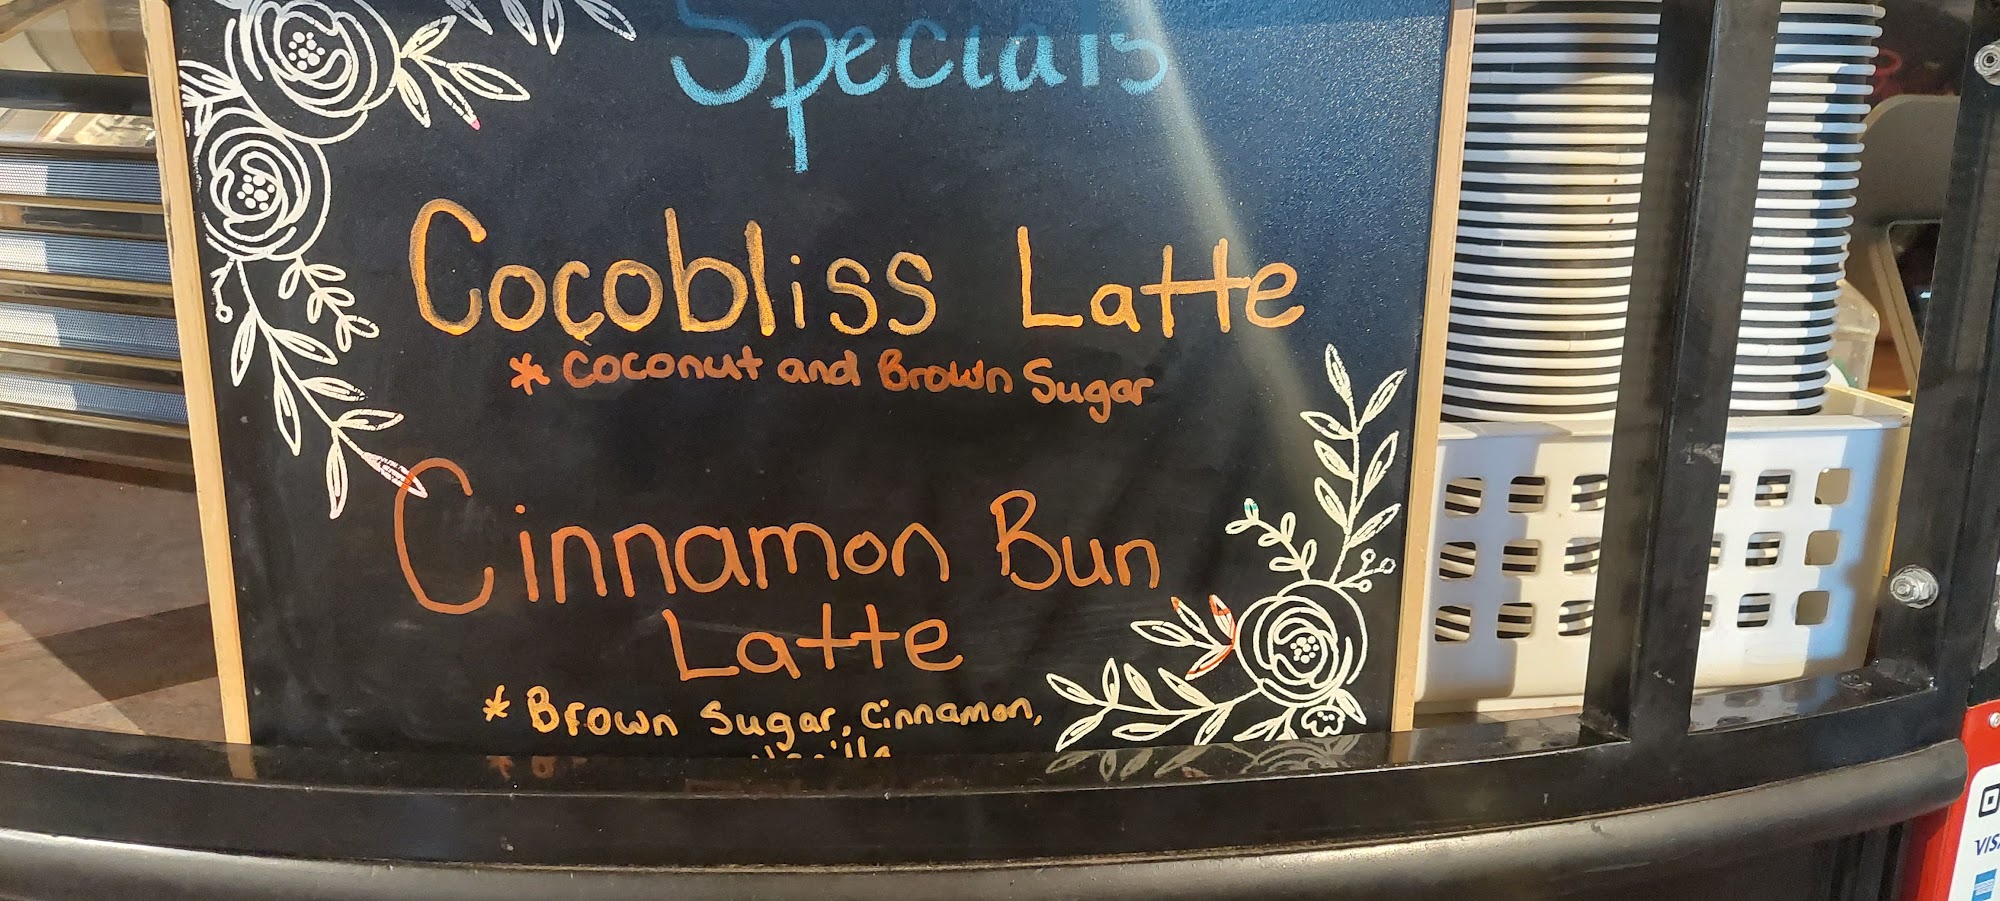 Specials
Cocobliss Latte
* Coconut and Brown Sugar
Cinnamon Bun
Latte
* Brown Sugar, Cinnamon,
Vanilla
VISA